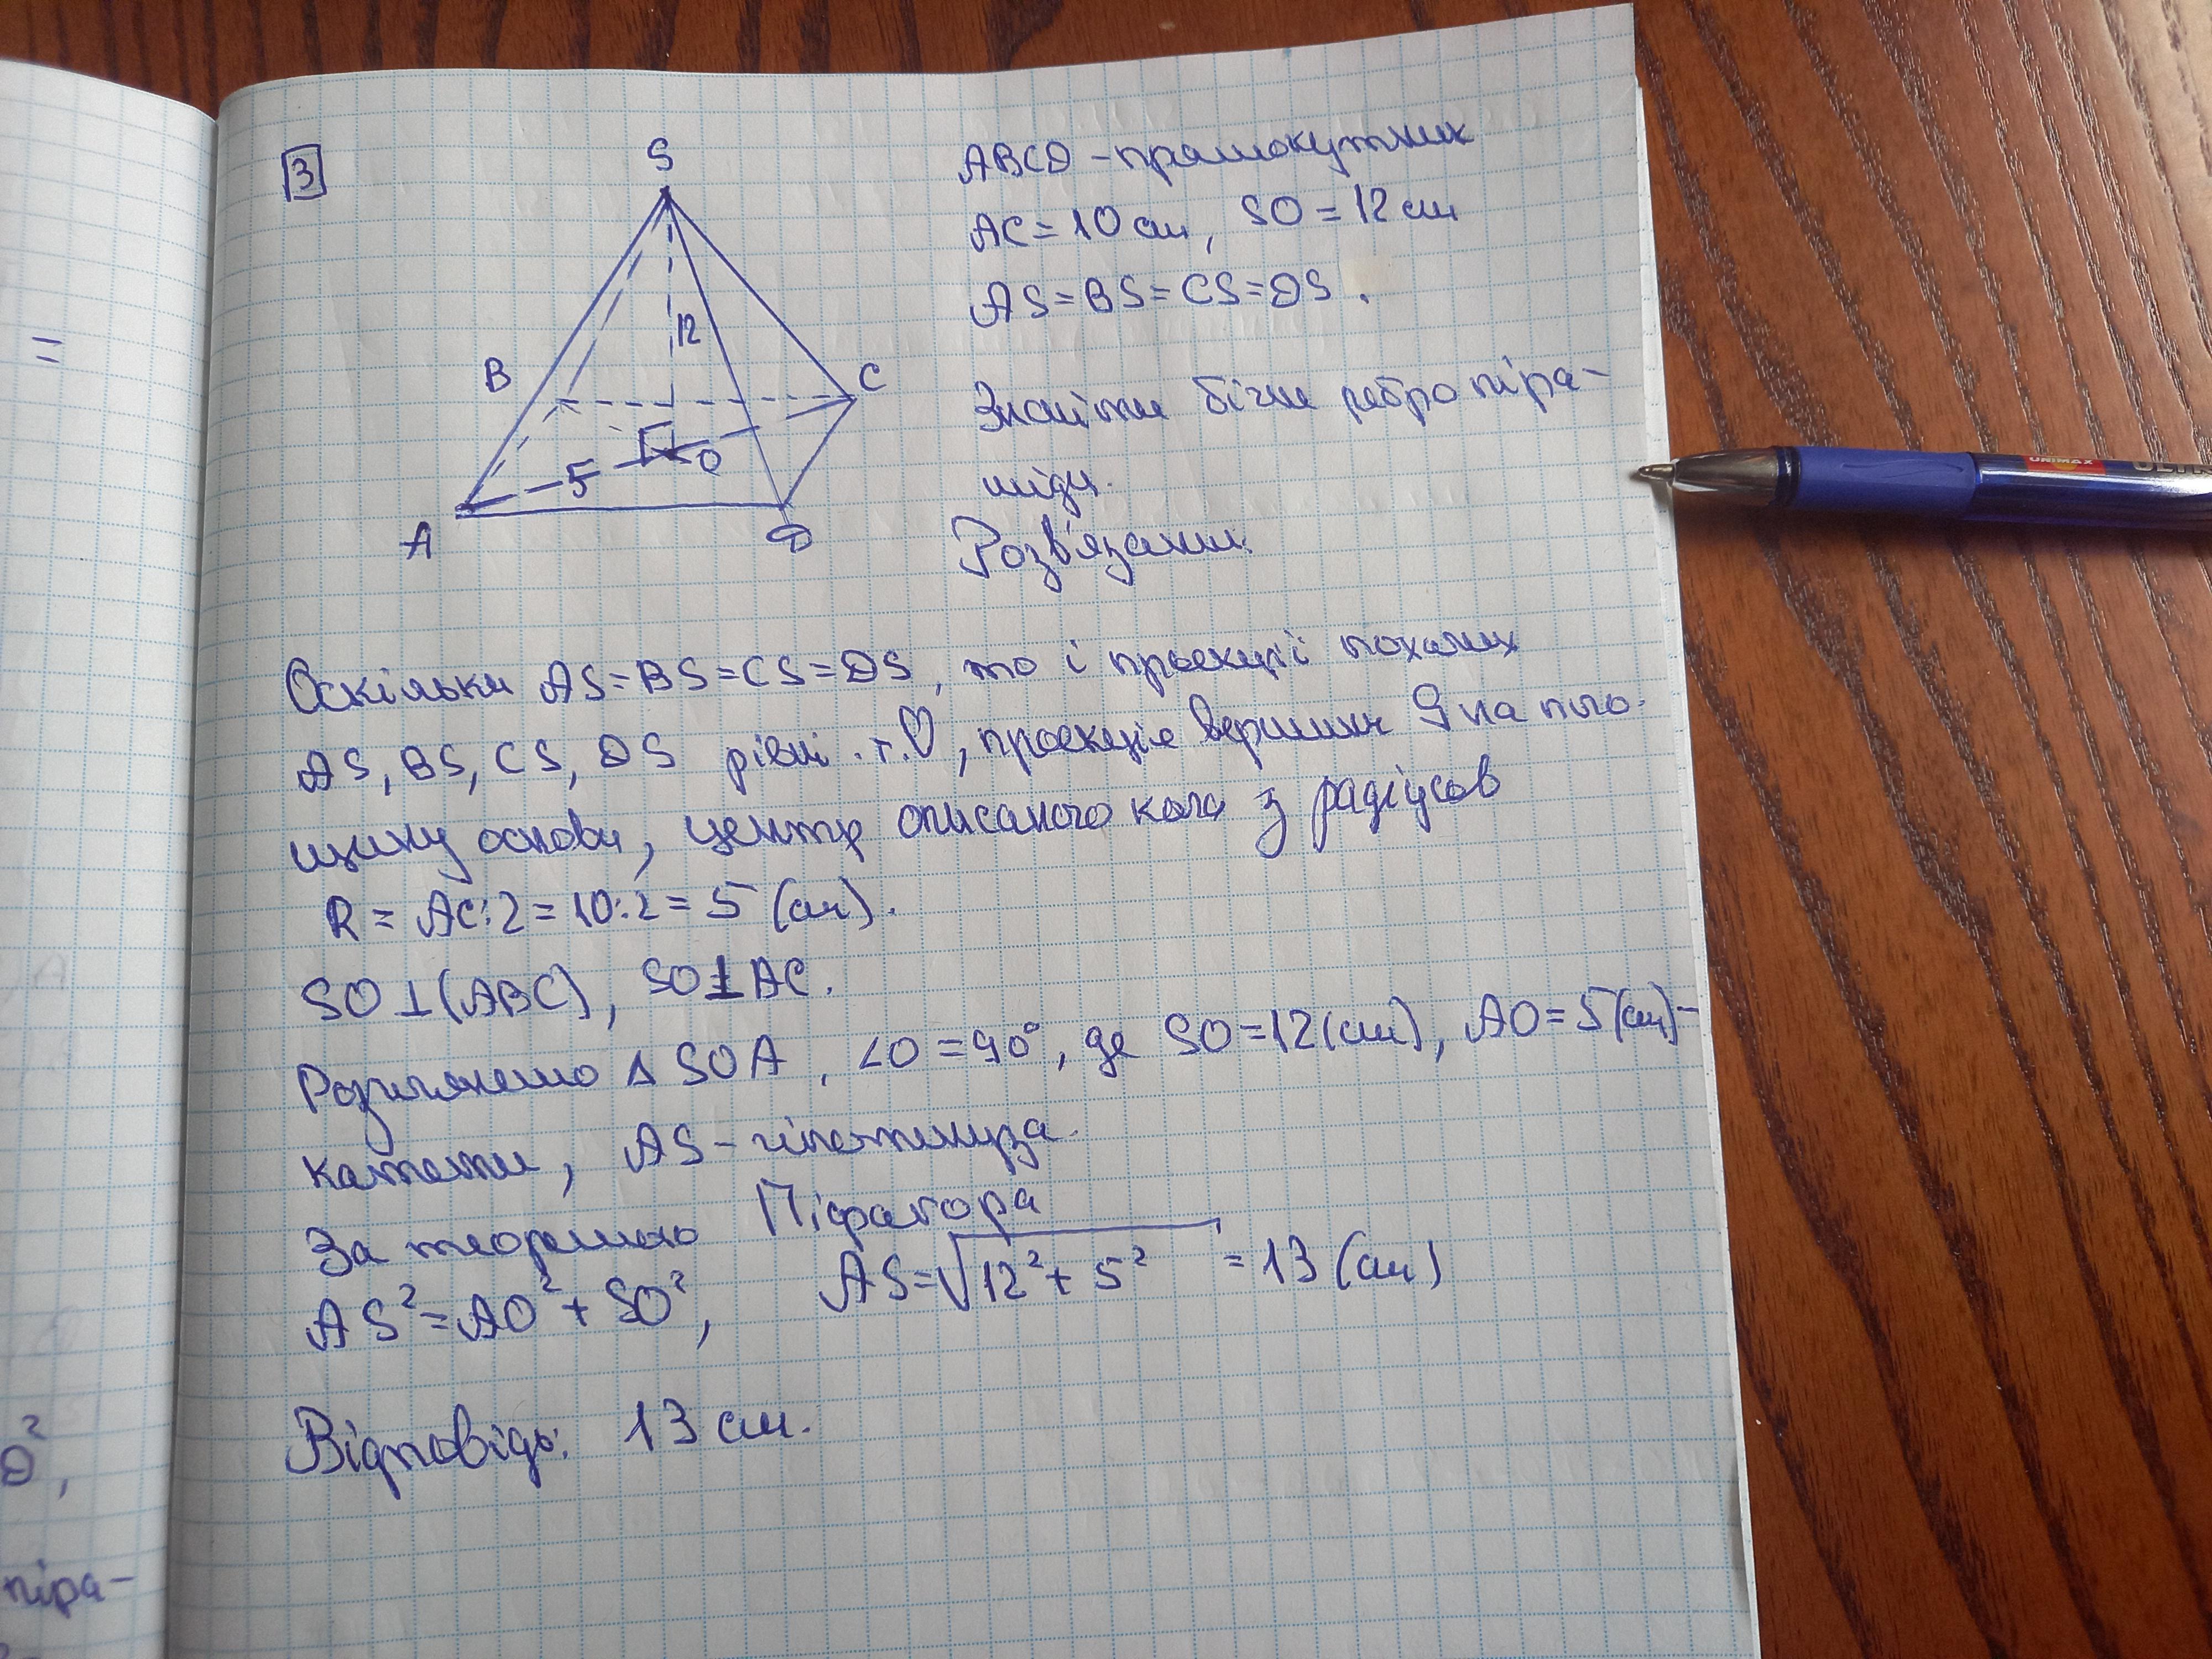 3
S
12
B
C
5
O
A
D
ABCD - прямокутник
AC = 10 см, SO = 12 см
AS = BS = CS = DS.
Знайти бічне ребро піра-
міди.
Розв'язання:
Оскільки AS = BS = CS = DS, то і проекції похилих
AS, BS, CS, DS рівні. т. O, проекція вершини S на пло-
щину основи, центр описаного кола з радіусов
R = AC : 2 = 10 : 2 = 5 (см).
SO ⊥ (ABC), SO ⊥ AC.
Розглянемо Δ SOA, ∠O = 90°, де SO = 12 (см), AO = 5 (см) -
катети, AS - гіпотенуза.
За теоремою Піфагора
AS² = AO² + SO², AS = √12² + 5² = 13 (см)
Відповідь: 13 см.
=
D²,
піра-
UNIMAX